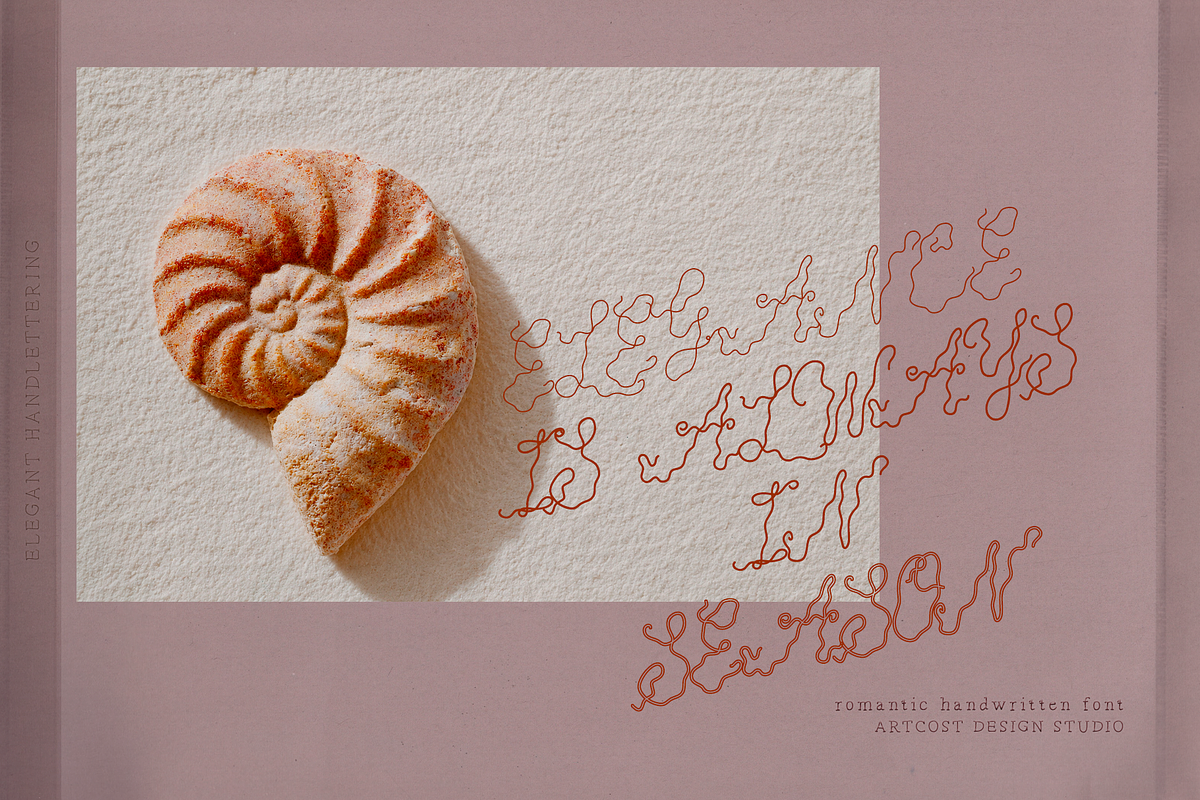 ELEGANCE
IS ALWAYS
IN
SEASON
romantic handwritten font
ARTCOST DESIGN STUDIO
ELEGANT HANDLETTERING